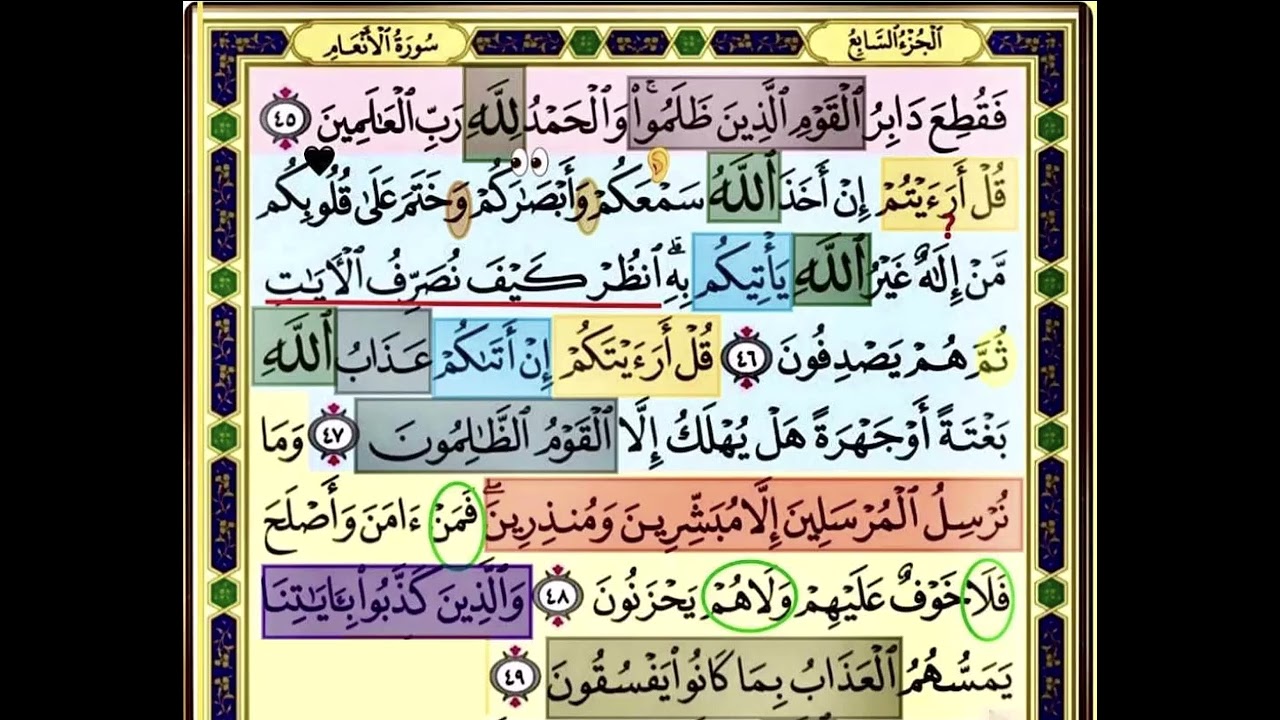 سُورَةُ الْأَنْعَامِ
الْجُزْءُ السَّابِعُ
فَقُطِعَ دَابِرُ ٱلْقَوْمِ ٱلَّذِينَ ظَلَمُوا۟ ۚ وَٱلْحَمْدُ لِلَّهِ رَبِّ ٱلْعَـٰلَمِينَ ٤٥
قُلْ أَرَءَيْتُمْ إِنْ أَخَذَ ٱللَّهُ سَمْعَكُمْ وَأَبْصَـٰرَكُمْ وَخَتَمَ عَلَىٰ قُلُوبِكُم
مَّنْ إِلَـٰهٌ غَيْرُ ٱللَّهِ يَأْتِيكُم بِهِ ۗ ٱنظُرْ كَيْفَ نُصَرِّفُ ٱلْـَٔايَـٰتِ
ثُمَّ هُمْ يَصْدِفُونَ ٤٦ قُلْ أَرَءَيْتَكُمْ إِنْ أَتَىٰكُمْ عَذَابُ ٱللَّهِ
بَغْتَةً أَوْ جَهْرَةً هَلْ يُهْلَكُ إِلَّا ٱلْقَوْمُ ٱلظَّـٰلِمُونَ ٤٧ وَمَا
نُرْسِلُ ٱلْمُرْسَلِينَ إِلَّا مُبَشِّرِينَ وَمُنذِرِينَ ۖ فَمَنْ ءَامَنَ وَأَصْلَحَ
فَلَا خَوْفٌ عَلَيْهِمْ وَلَا هُمْ يَحْزَنُونَ ٤٨ وَٱلَّذِينَ كَذَّبُوا۟ بِـَٔايَـٰتِنَا
يَمَسُّهُمُ ٱلْعَذَابُ بِمَا كَانُوا۟ يَفْسُقُونَ ٤٩